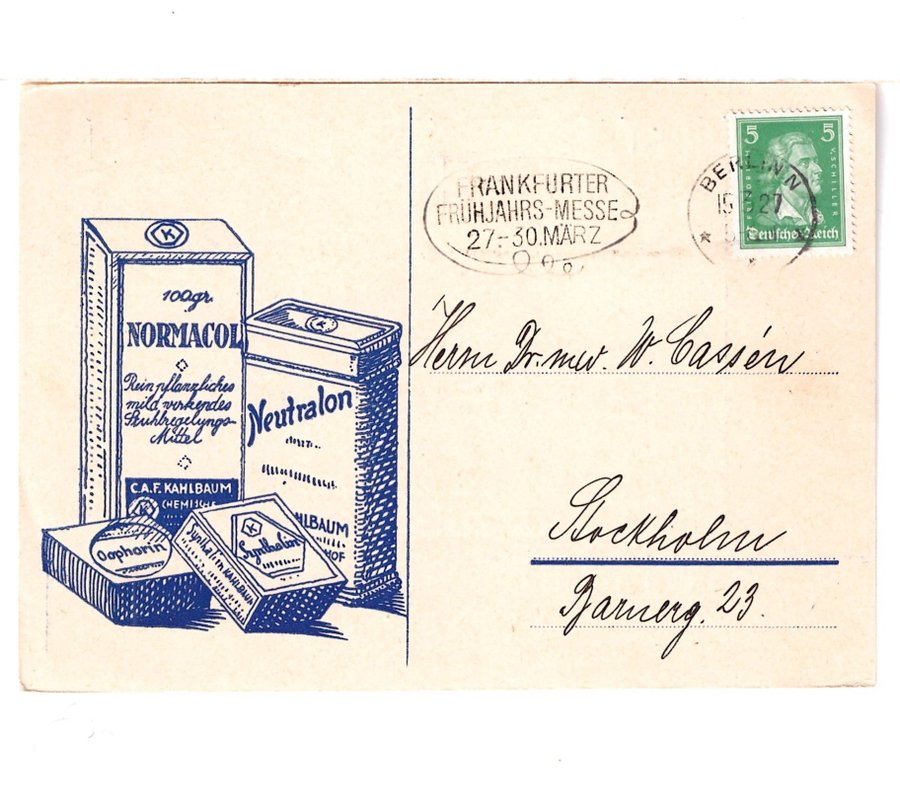 FRANKFURTER
FRÜHJAHRS-MESSE
27.-30.MÄRZ
BERLIN N
27
5 5
FRIEDRICH V. SCHILLER
Deutsches Reich
K
100gr.
NORMACOL
Rein pflanzliches
mild wirkendes
Stuhlregelungs-
Mittel
C.A.F. KAHLBAUM
CHEMISCHE
K
Neutralon
HLBAUM
HOF
K
Oophorin
K
Synthalin
Synthalin KAHLBAUM
Herrn Dr. med. W. Cassén
Stockholm
23.